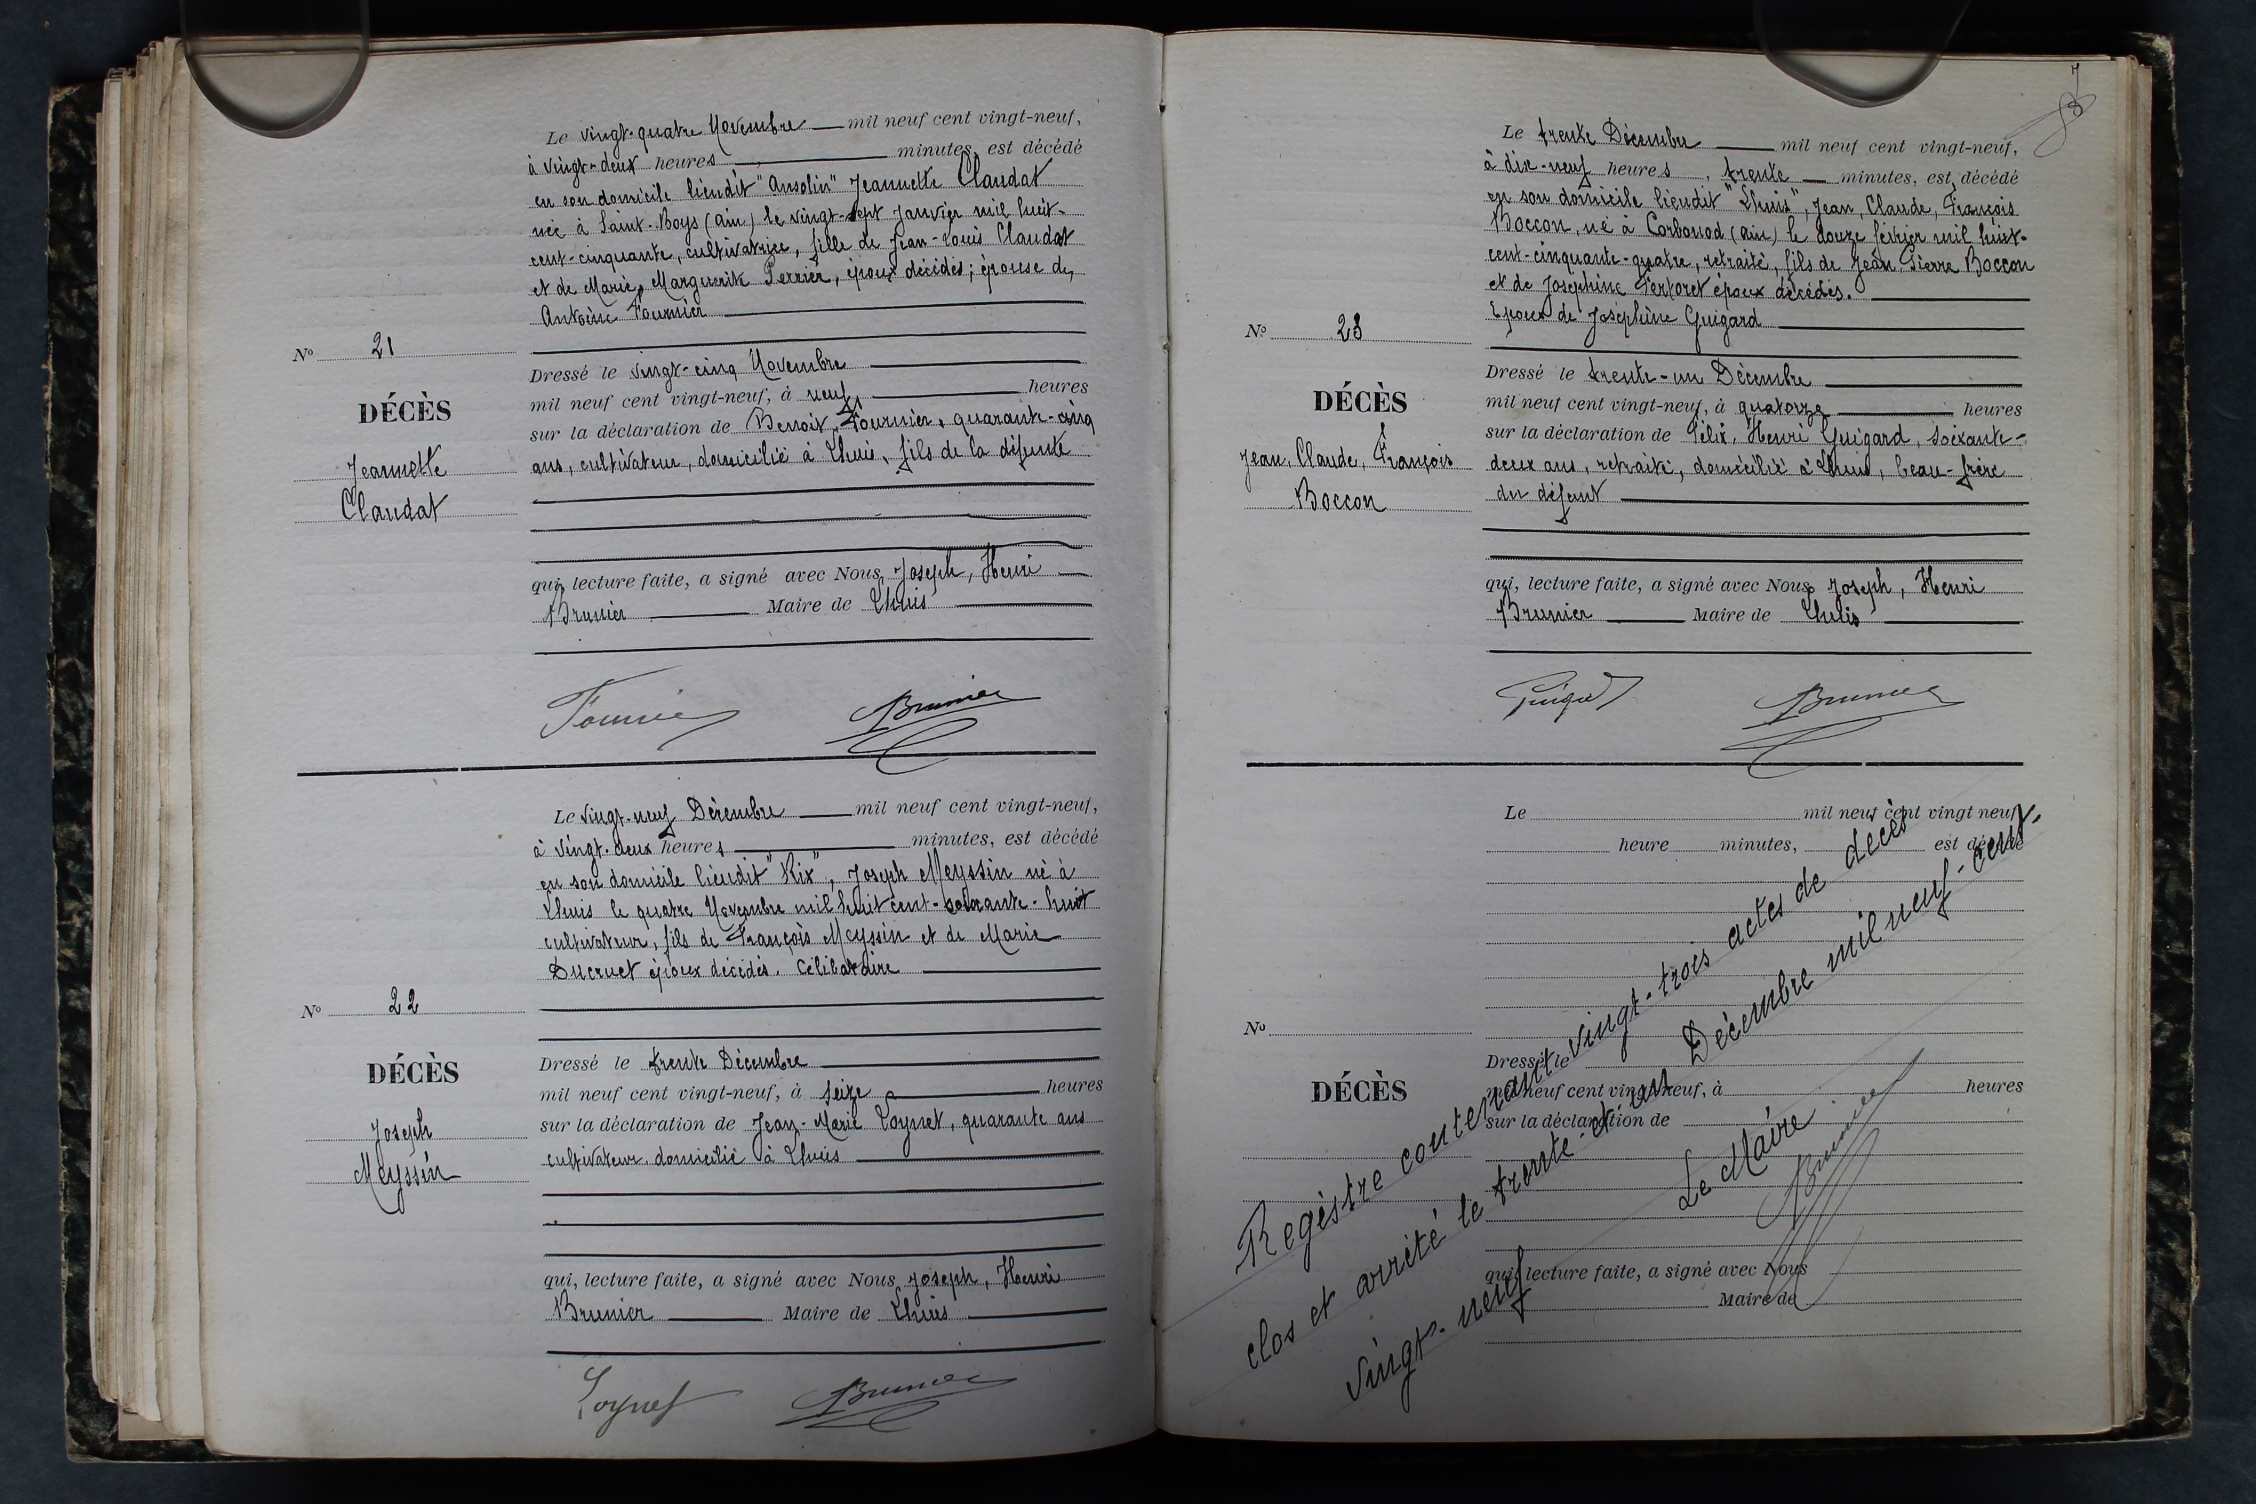 Le vingt-quatre Novembre mil neuf cent vingt-neuf,
à vingt-deux heures minutes, est décédé
en son domicile lieudit "Ansolin" Jeannette Claudat
née à Saint-Boys (ain) le vingt-sept Janvier mil huit-
cent-cinquante, cultivatrice, fille de Jean-Louis Claudat
et de Marie, Marguerite Perrier, époux décédés; épouse de
Antoine Fournier
No 21
DÉCÈS
Jeannette
Claudat
Dressé le vingt-cinq Novembre
mil neuf cent vingt-neuf, à neuf heures
sur la déclaration de Benoit Fournier, quarante-cinq
ans, cultivateur, domicilié à Lhuis, fils de la défunte
qui, lecture faite, a signé avec Nous, Joseph, Henri
Brunier Maire de Lhuis
Fournier Brunier
Le vingt-neuf Décembre mil neuf cent vingt-neuf,
à vingt-deux heures minutes, est décédé
en son domicile lieudit "Rix", Joseph Meyssin né à
Lhuis le quatre Novembre mil huit cent-soixante-huit
cultivateur, fils de François Meyssin et de Marie
Ducruet époux décédés. Célibataire
No 22
DÉCÈS
Joseph
Meyssin
Dressé le trente Décembre
mil neuf cent vingt-neuf, à seize heures
sur la déclaration de Jean-Marie Loynet, quarante ans
cultivateur domicilié à Lhuis
qui, lecture faite, a signé avec Nous, Joseph, Henri
Brunier Maire de Lhuis
Loynet Brunier
Le trente Décembre mil neuf cent vingt-neuf,
à dix-neuf heures, trente minutes, est décédé
en son domicile lieudit "Lhuis", Jean, Claude, François
Boccon, né à Corbonod (ain) le douze février mil huit-
cent-cinquante-quatre, retraité, fils de Jean-Pierre Boccon
et de Josephine Pertoret époux décédés.
Epoux de Joséphine Guigard
No 23
DÉCÈS
Jean, Claude, François
Boccon
Dressé le trente-un Décembre
mil neuf cent vingt-neuf, à quatorze heures
sur la déclaration de Félix, Henri Guigard, soixante-
deux ans, retraité, domicilié à Lhuis, beau-frère
du défunt
qui, lecture faite, a signé avec Nous, Joseph, Henri
Brunier Maire de Lhuis
Guigard Brunier
Le mil neuf cent vingt neuf,
heure minutes, est décédé
No
DÉCÈS
Dressé le
mil neuf cent vingt-neuf, à heures
sur la déclaration de
qui, lecture faite, a signé avec Nous
Maire de
Registre contenant vingt-trois actes de décès
clos et arrêté le trente-et-un Décembre mil neuf-cent-
vingt-neuf
Le Maire
Brunier